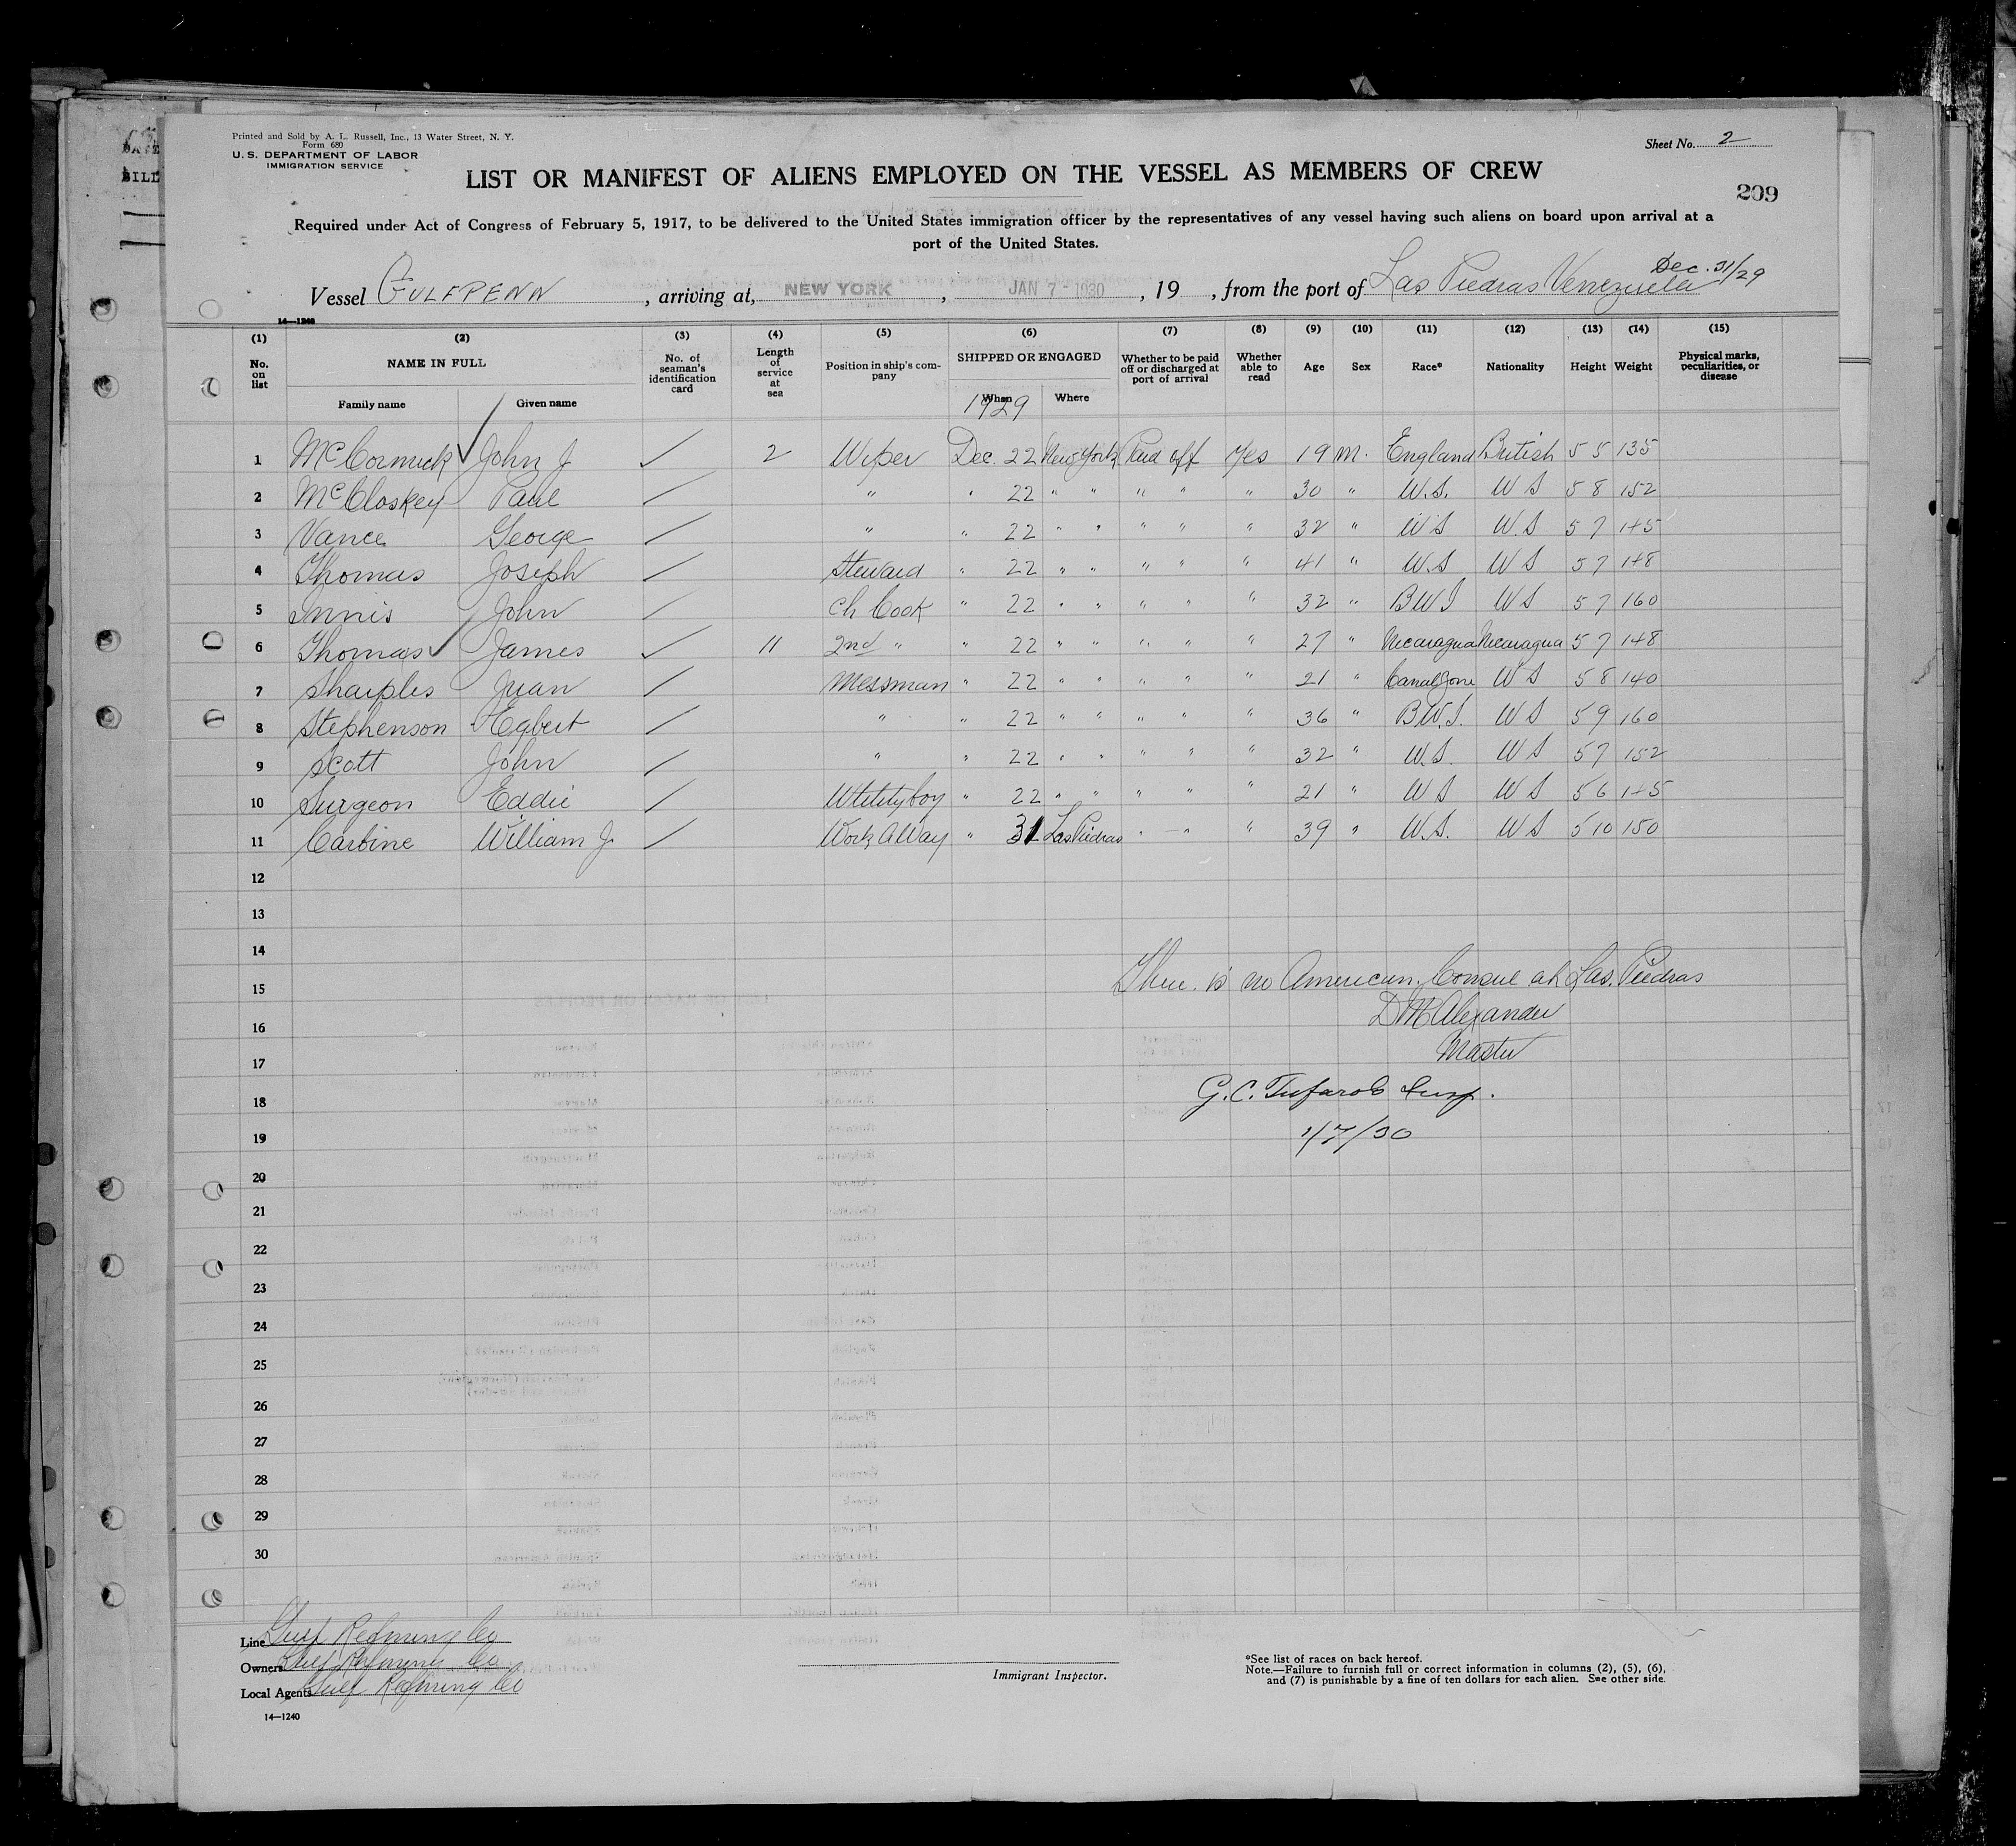 Printed and Sold by A. L. Russell, Inc., 13 Water Street, N. Y.
Form 680
U. S. DEPARTMENT OF LABOR
IMMIGRATION SERVICE
Sheet No. 2
LIST OR MANIFEST OF ALIENS EMPLOYED ON THE VESSEL AS MEMBERS OF CREW
209
Required under Act of Congress of February 5, 1917, to be delivered to the United States immigration officer by the representatives of any vessel having such aliens on board upon arrival at a
port of the United States.
Dec. 31/29
Vessel GULFPENN, arriving at, NEW YORK, JAN 7 - 1930, 19 , from the port of Las Piedras Venezuela
14—1240
(1) (2) (3) (4) (5) (6) (7) (8) (9) (10) (11) (12) (13) (14) (15)
No. on list NAME IN FULL Family name Given name No. of seaman's identification card Length of service at sea Position in ship's company SHIPPED OR ENGAGED When Where Whether to be paid off or discharged at port of arrival Whether able to read Age Sex Race* Nationality Height Weight Physical marks, peculiarities, or disease
1929
1 McCormick ✓ John J ✓ 2 Wiper Dec. 22 New York Paid off Yes 19 M. England British 5 5 135
2 McCloskey Paul / " " 22 " " " " " 30 " U.S. U S 5 8 152
3 Vance George / " " 22 " " " " " 32 " U S U.S 5 7 145
4 Thomas Joseph / Steward " 22 " " " " " 41 " U.S U S 5 7 148
5 Innis John / Ch Cook " 22 " " " " " 32 " B W I U S 5 7 160
6 Thomas ✓ James ✓ 11 2nd " " 22 " " " " " 27 " Nicaragua Nicaragua 5 7 148
7 Sharples Juan / Messman " 22 " " " " " 21 " Canal Zone U S 5 8 140
8 Stephenson Egbert / " " 22 " " " " " 36 " B.W.I. U S 5 9 160
9 Scott John / " " 22 " " " " " 32 " U.S. U S 5 7 152
10 Surgeon Eddie / Utility boy " 22 " " " " " 21 " U S U S 5 6 145
11 Carbine William J. / Work A Way " 31 Las Piedras " " " 39 " U.S. U S 5 10 150
12
13
14
15
There is no American Consul at Las Piedras
16
D M Alexander
17
Master
18
G. C. Tufarolo Insp.
19
1/7/30
20
21
22
23
24
25
26
27
28
29
30
Line Gulf Refining Co
Owners Gulf Refining Co
Local Agents Gulf Refining Co
14—1240
Immigrant Inspector.
*See list of races on back hereof.
Note.—Failure to furnish full or correct information in columns (2), (5), (6),
and (7) is punishable by a fine of ten dollars for each alien. See other side.